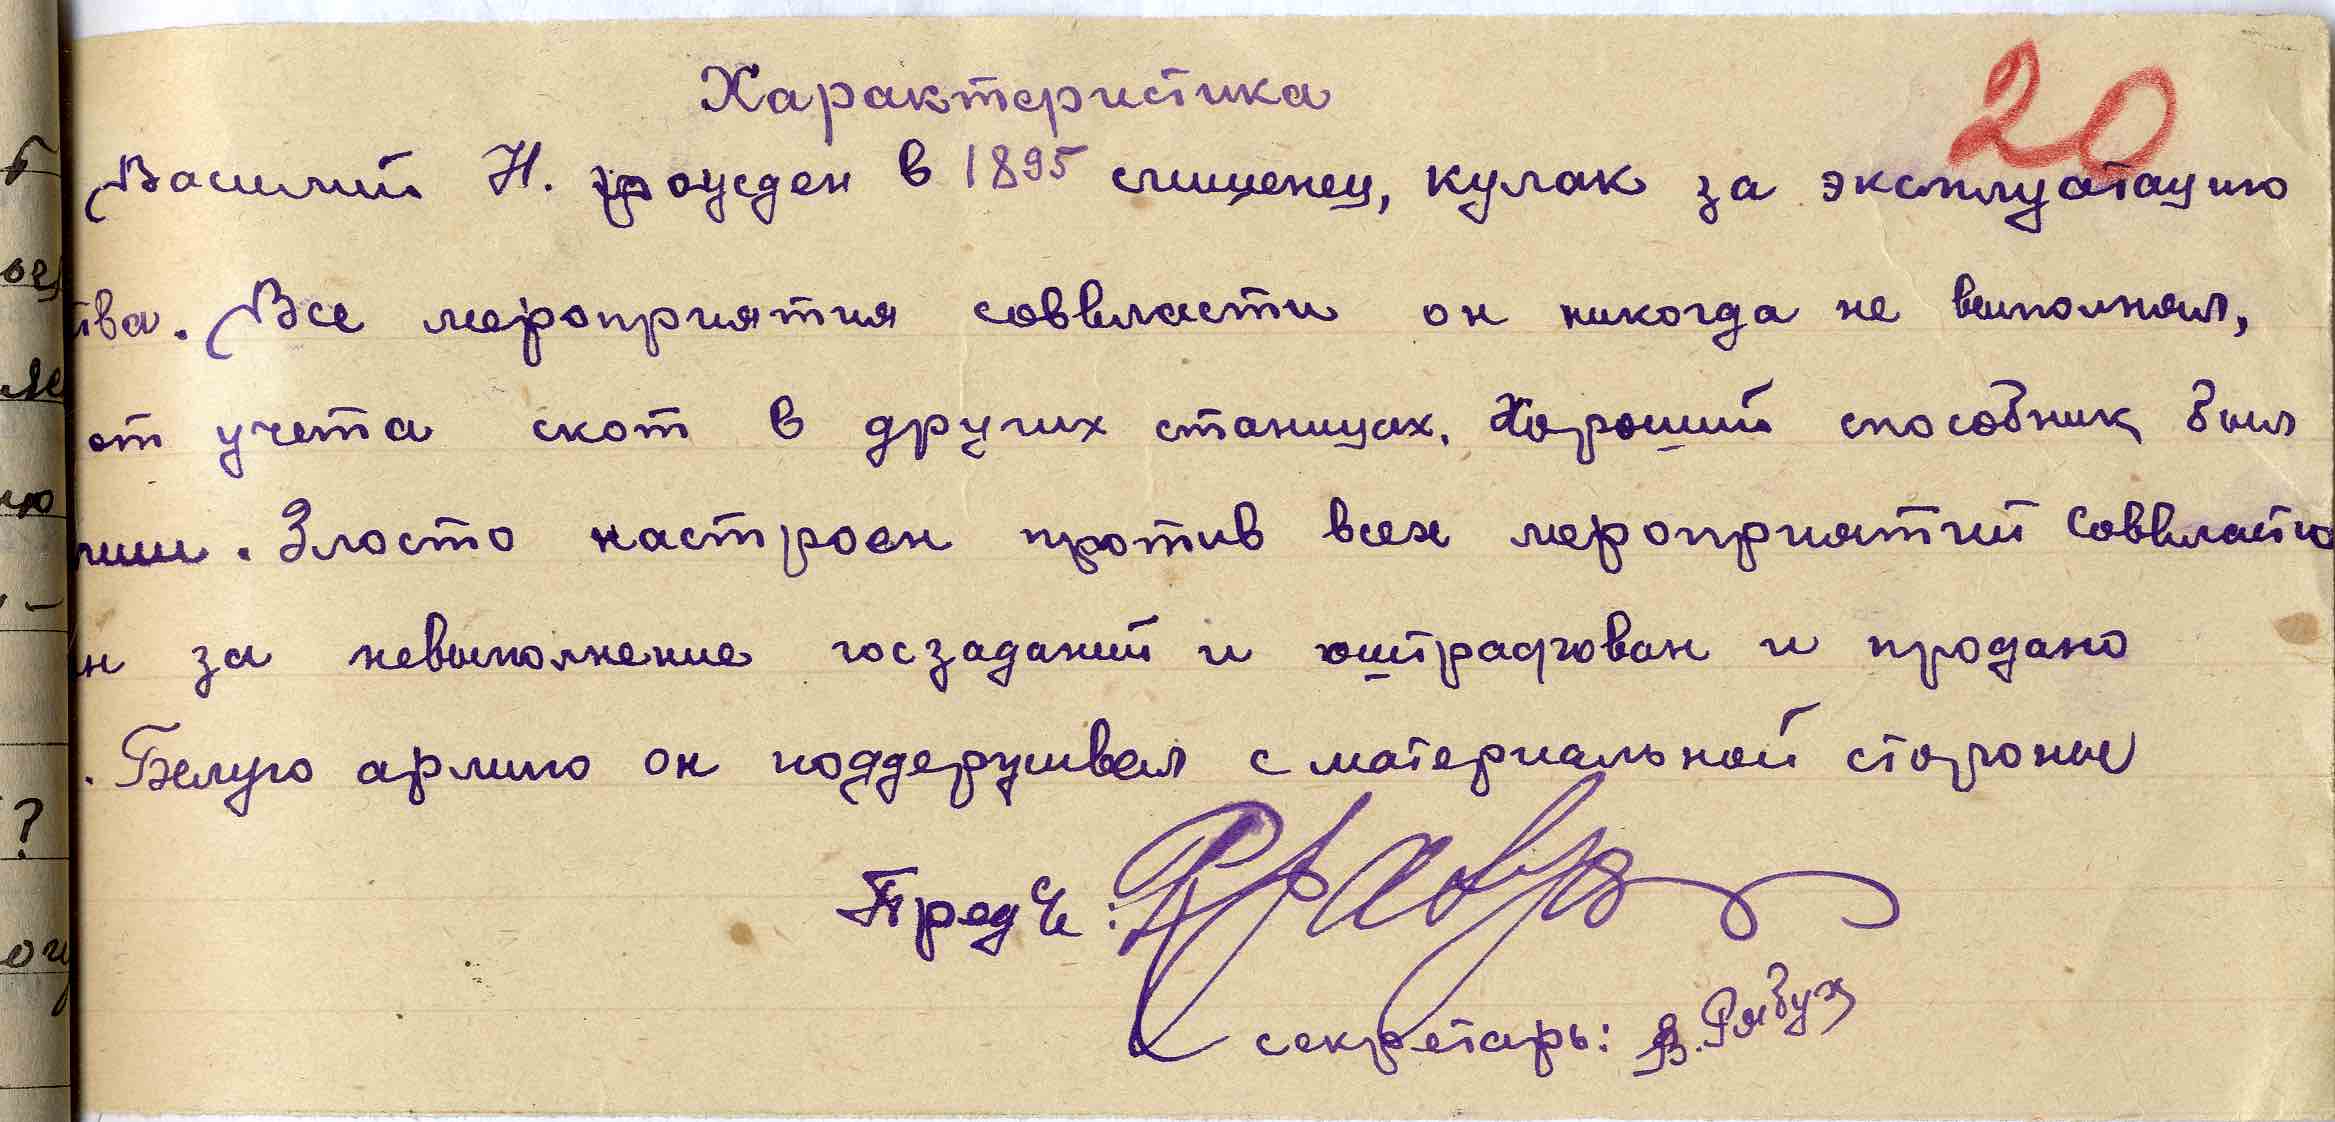 20
Характеристика
Василий Н. рожден в 1895 лишенец, кулак за эксплуатацию
тва. Все мероприятия соввласти он никогда не выполнял,
от учета скот в других станицах. Хороший способник был
ми. Злосто настроен против всех мероприятий Соввласти
н за невыполнение госзаданий и оштрафован и продано
. Белую армию он поддерживал с материальной стороны
Пред
секретарь: В. Рябух
?